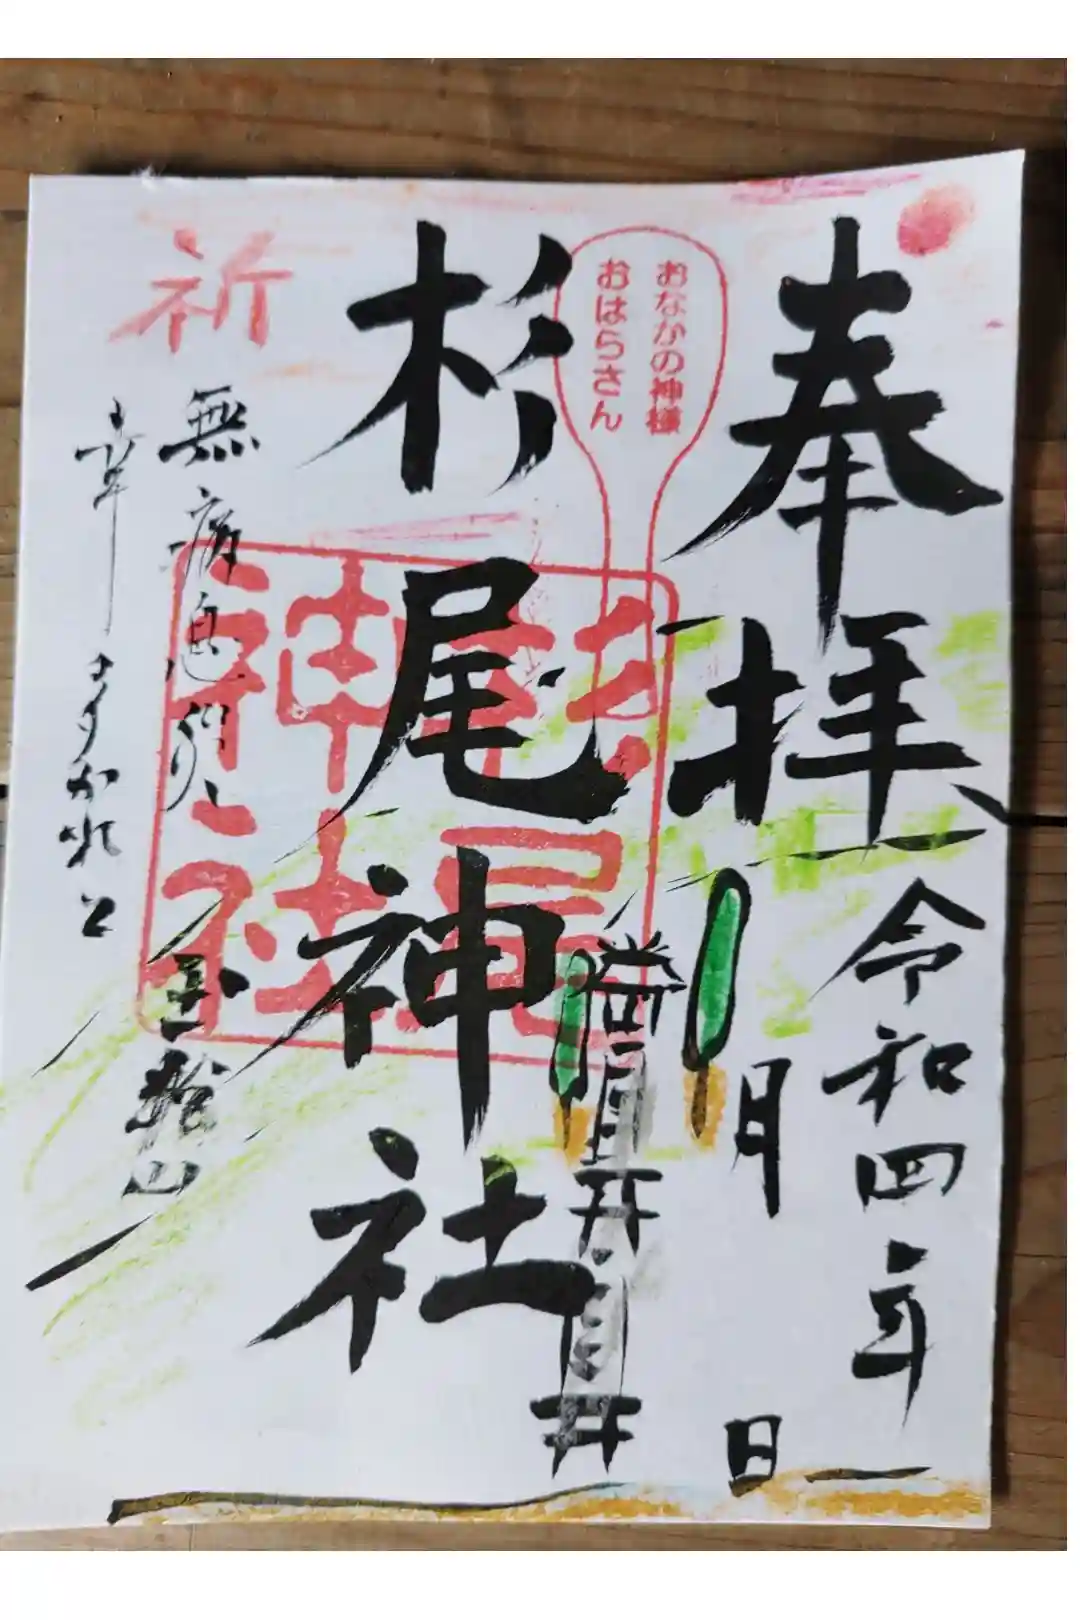 奉拝
令和四年
月
日
おなかの神様
おはらさん
杉尾神社
杉尾
神社
祈
無病息災
幸